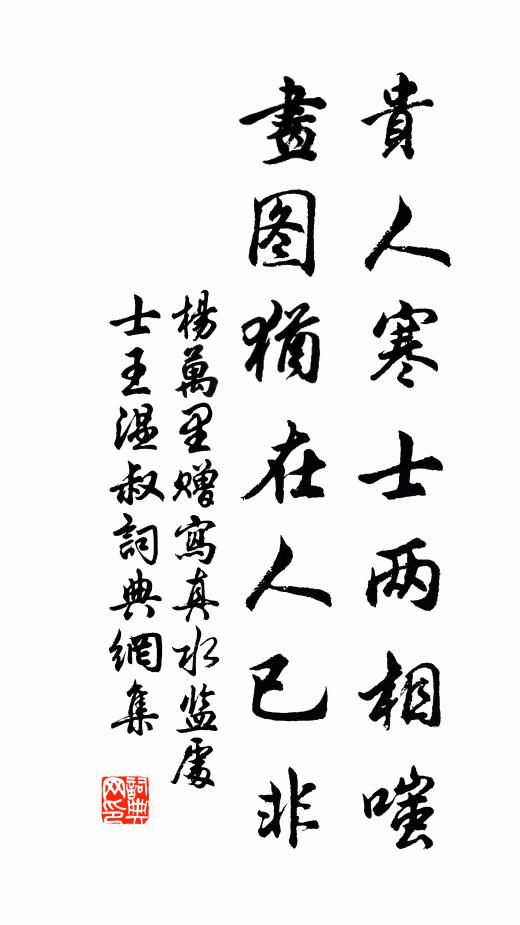 貴人寒士两相嗤
畫图猶在人已非
楊萬里赠寫真水监處
士王温叔詞典網集
詞典网印